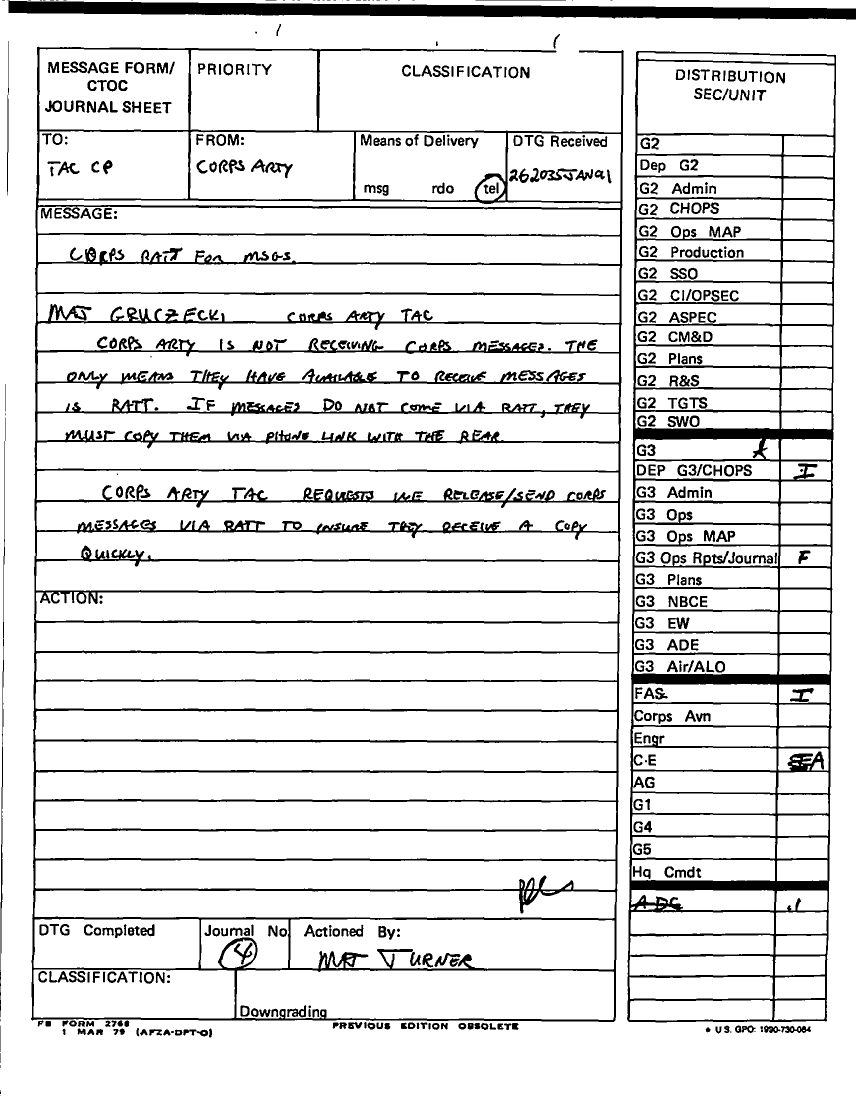 MESSAGE FORM/
CTOC
JOURNAL SHEET
PRIORITY
CLASSIFICATION
TO:
TAC CP
FROM:
CORPS ARTY
Means of Delivery
msg rdo tel
DTG Received
262035JAN91
MESSAGE:
CORPS RATT FOR MSGS.
MAJ GRUCZECKI CORPS ARTY TAC
CORPS ARTY IS NOT RECEIVING CORPS MESSAGES. THE
ONLY MEANS THEY HAVE AVAILABLE TO RECEIVE MESSAGES
IS RATT. IF MESSAGES DO NOT COME VIA RATT, THEY
MUST COPY THEM VIA PHONE LINK WITH THE REAR.
CORPS ARTY TAC REQUESTS WE RELEASE/SEND CORPS
MESSAGES VIA RATT TO INSURE THEY RECEIVE A COPY
QUICKLY.
ACTION:
DTG Completed
Journal No
4
Actioned By:
MAJ TURNER
CLASSIFICATION:
Downgrading
FB FORM 2768
1 MAR 79 (AFZA-DPT-O)
PREVIOUS EDITION OBSOLETE
DISTRIBUTION
SEC/UNIT
G2
Dep G2
G2 Admin
G2 CHOPS
G2 Ops MAP
G2 Production
G2 SSO
G2 CI/OPSEC
G2 ASPEC
G2 CM&D
G2 Plans
G2 R&S
G2 TGTS
G2 SWO
G3
DEP G3/CHOPS I
G3 Admin
G3 Ops
G3 Ops MAP
G3 Ops Rpts/Journal F
G3 Plans
G3 NBCE
G3 EW
G3 ADE
G3 Air/ALO
FAS I
Corps Avn
Engr
C-E A
AG
G1
G4
G5
Hq Cmdt
ADC
* U.S. GPO: 1990-730-084